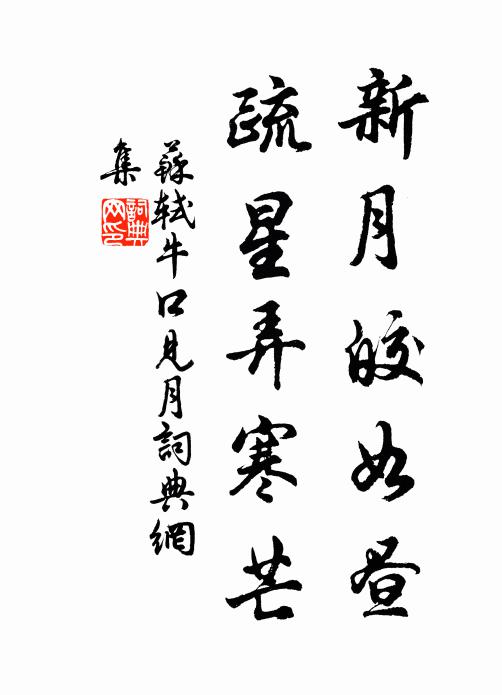 新月皎如晝
疏星弄寒芒
蘇軾牛口見月詞典網
集
詞典
网印